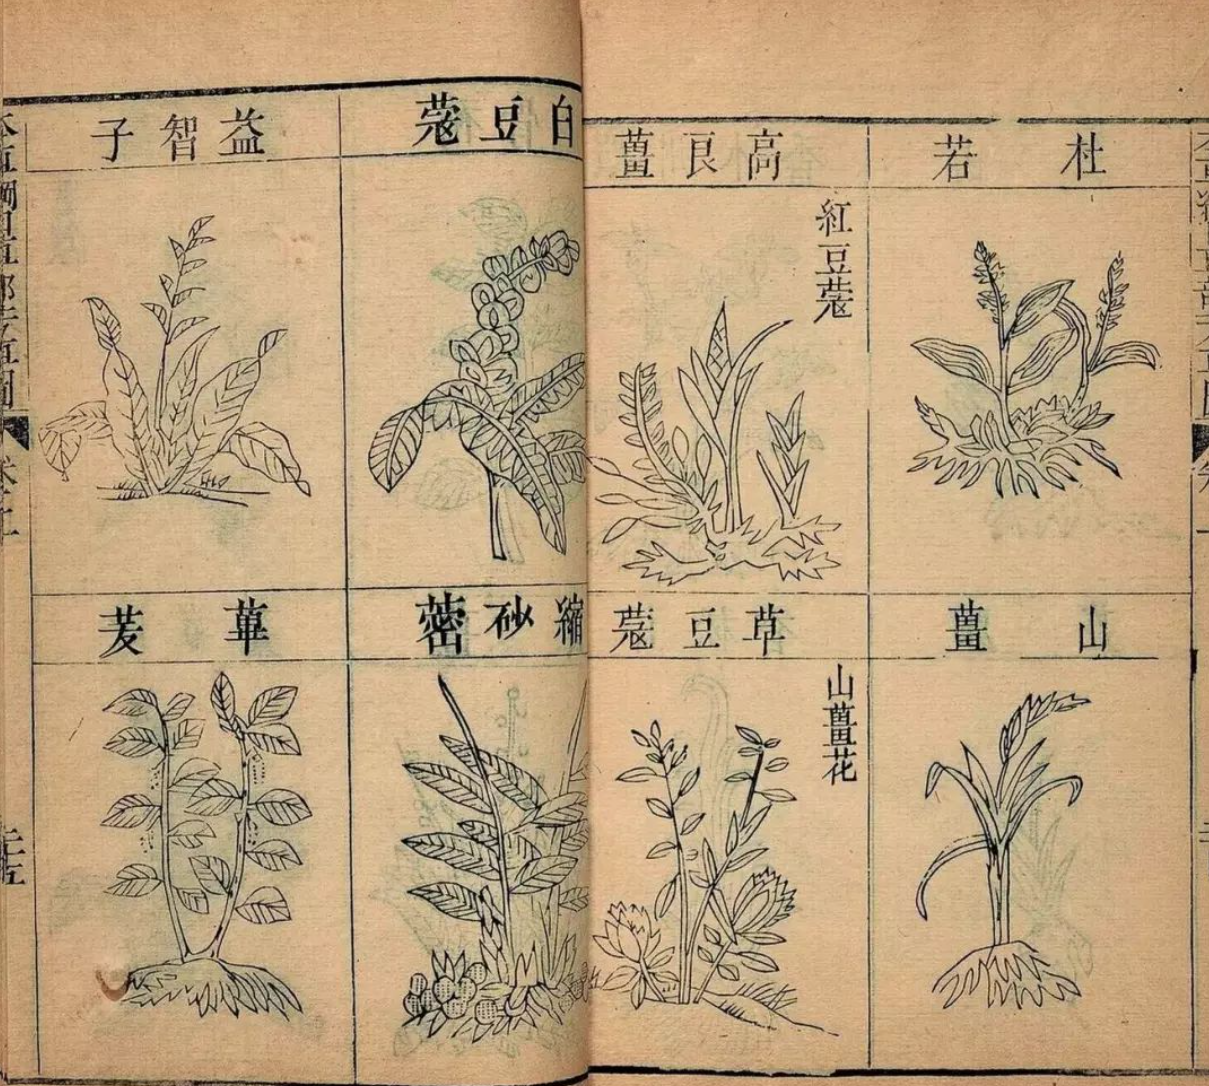 杜若
高良薑
紅豆蔻
山薑
草豆蔻
山薑花
白豆蔻
益智子
縮砂蔤
蓽茇